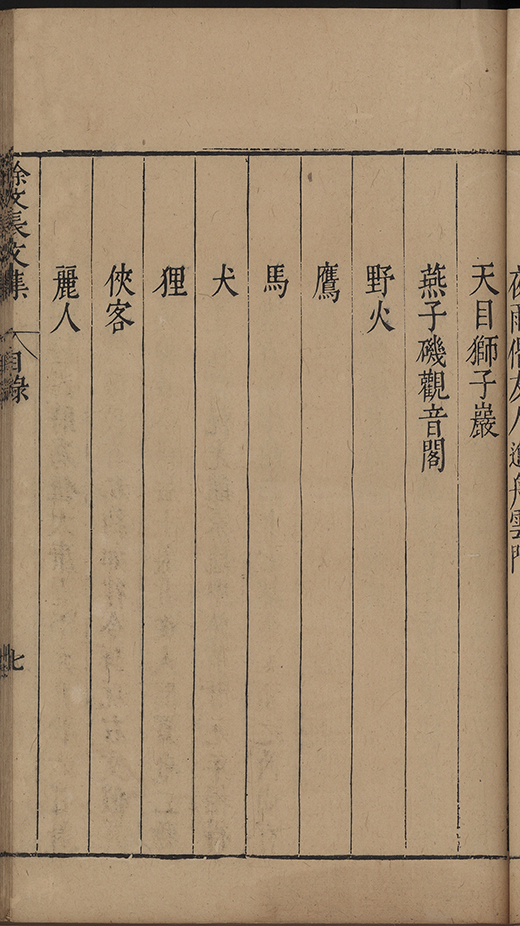 夜雨偕友人進舟雲門
天目獅子巖
燕子磯觀音閣
野火
鷹
馬
犬
狸
俠客
麗人
徐文長文集
目錄
七